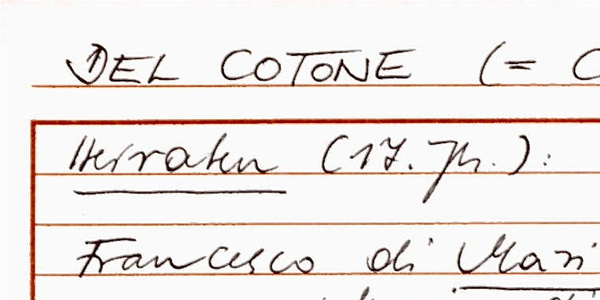 DEL COTONE (= C
Heiraten (17. Jh.):
Francesco di Mari